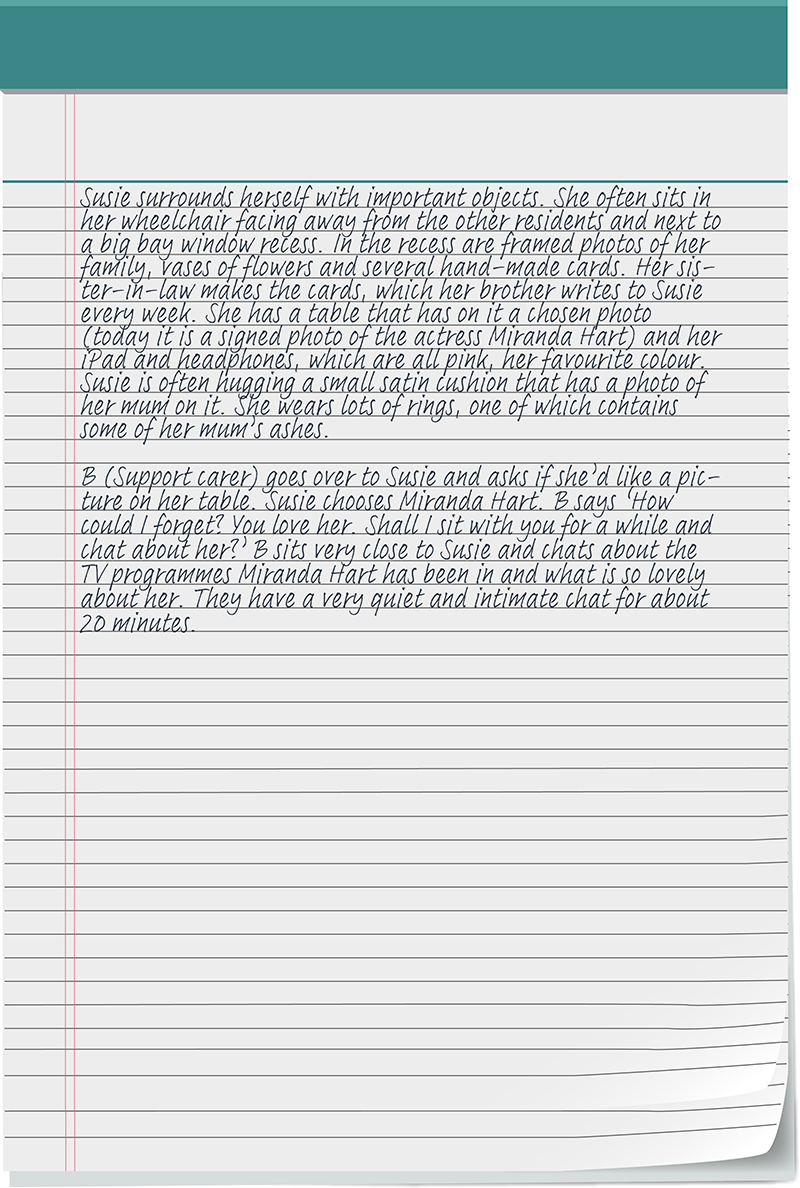 Susie surrounds herself with important objects. She often sits in
her wheelchair facing away from the other residents and next to
a big bay window recess. In the recess are framed photos of her
family, vases of flowers and several hand-made cards. Her sis-
ter-in-law makes the cards, which her brother writes to Susie
every week. She has a table that has on it a chosen photo
(today it is a signed photo of the actress Miranda Hart) and her
iPad and headphones, which are all pink, her favourite colour.
Susie is often hugging a small satin cushion that has a photo of
her mum on it. She wears lots of rings, one of which contains
some of her mum's ashes.

B (Support carer) goes over to Susie and asks if she'd like a pic-
ture on her table. Susie chooses Miranda Hart. B says 'How
could I forget? You love her. Shall I sit with you for a while and
chat about her?' B sits very close to Susie and chats about the
TV programmes Miranda Hart has been in and what is so lovely
about her. They have a very quiet and intimate chat for about
20 minutes.